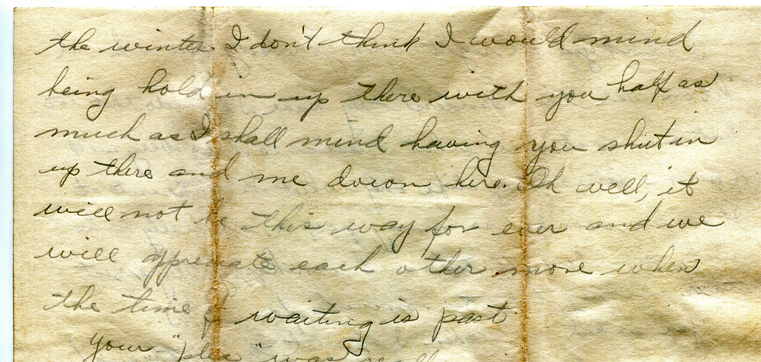 the winter I don't think I would mind
being hold in up there with you half as
much as I shall mind having you shut in
up there and me down here. Oh well, it
will not be this way for ever and we
will appreciate each other more when
the time of waiting is past
your "plea" was